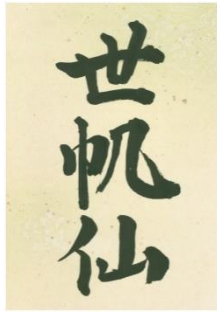 世帆仙